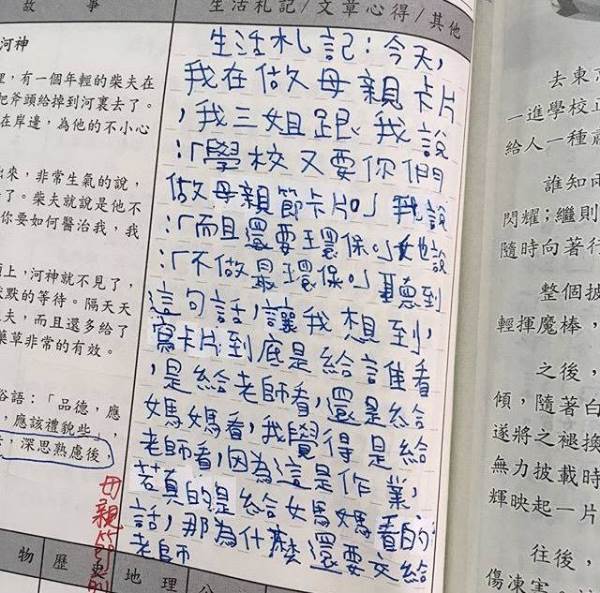 故 事
河神
裡，有一個年輕的柴夫在
把斧頭給掉到河裏去了。
在岸邊，為他的不小心
出來，非常生氣的說，
了。柴夫就說是他不
你要如何醫治我，我
頭上，河神就不見了，
默默的等待。隔天天
夫，而且還多給了
藥草非常的有效。
俗語：「品德，應
，應該禮貌些」，
，深思熟慮後，
母親節
物 歷 史 地 理
生活札記/文章心得/其他
生活札記：今天，
我在做母親卡片
，我三姐跟我說
：「學校又要你們
做母親節卡片。」我說
：「而且還要環保。」她說
：「不做最環保。」聽到
這句話，讓我想到，
寫卡片到底是給誰看
，是給老師看，還是給
媽媽看，我覺得是給
老師看，因為這是作業，
若真的是給媽媽看的
話，那為什麼還要交給
老師
去東
一進學校正
給人一種肅
誰知雨
閃耀；繼則
隨時向著行
整個披
輕揮魔棒，
之後，
傾，隨著白
遂將之褪換
無力披載時
輝映起一片
往後，
傷凍害。